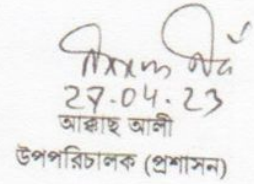 27.04.23
আক্কাছ আলী
উপপরিচালক (প্রশাসন)